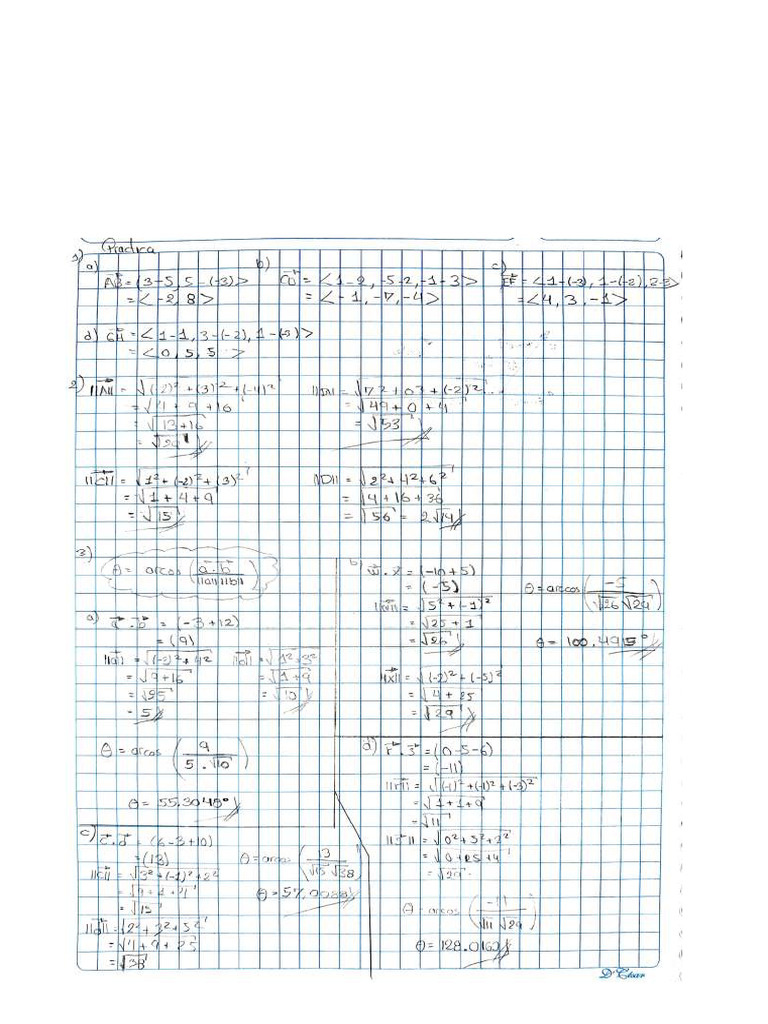 Practica
1)
a) AB = (3-5, 5-(-3)>
= <-2, 8>
b) CD = <1-2, -5-2, -1-3>
= <-1, -7, -4>
c) EF = <1-(-3), 1-(-2), 2-3>
= <4, 3, -1>
d) GH = <1-1, 3-(-2), 1-(-5)>
= <0, 5, 5 >
2) ||A|| = √(-2)² + (3)² + (-4)²
= √4 + 9 + 16
= √13+16
= √29
= √7² + 0² + (-2)²
= √49 + 0 + 4
= √53
||C|| = √1² + (-2)² + (3)²
= √1 + 4 + 9
= √15
||D|| = √2² + 4² + 6²
= √4 + 16 + 36
= √56 = 2√14
3)
θ = arcos (a·b / ||a|| ||b||)
a) a · b = (-3+12)
= (9)
||a|| = √(-3)² + 4²
= √9+16
= √25
= 5
||b|| = √1² + 3²
= √1+9
= √10
θ = arcos (9 / 5·√10)
θ = 55.3048°
b) w · x = (-10+5)
= (-5)
||w|| = √5² + (-1)²
= √25 + 1
= √26
||x|| = √(-2)² + (-5)²
= √4 + 25
= √29
θ = arccos (-5 / √26 √29)
θ = 100.4915°
c) c · d = (6-3+10)
= (13)
||c|| = √3² + (-1)² + 2²
= √9 + 1 + 4
= √15
||d|| = √2² + 3² + 5²
= √4 + 9 + 25
= √38
θ = arcos (13 / √15 √38)
θ = 57.0088
d) r · s = (0-5-6)
= (-11)
||r|| = √(-1)² + (-1)² + (-3)²
= √1+1+9
= √11
||s|| = √0² + 5² + 2²
= √0+25+4
= √29
θ = arcos (-11 / √11 √29)
θ = 128.0162